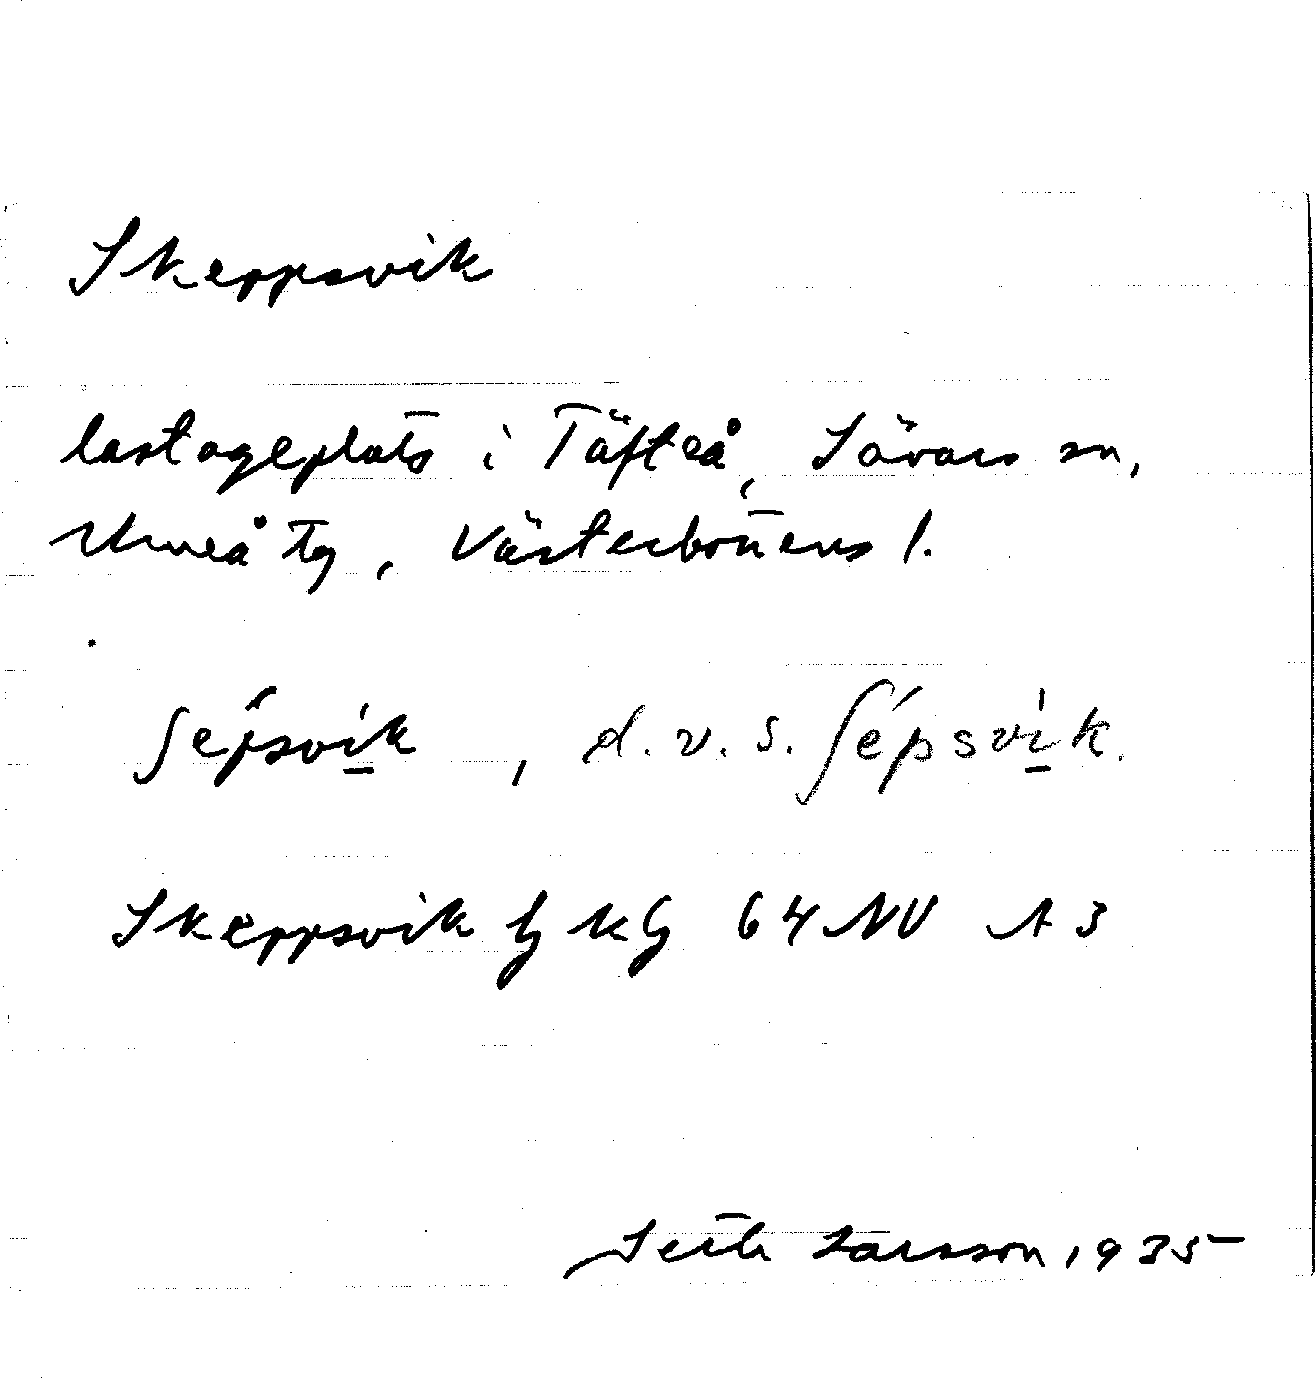 Skeppsvik
lastageplats i Täfteå, Sävars sn,
Umeå tg, Västerbottens l.
ʃépsvi̱k, d.v.s. ʃépsvi̱k.
Skeppsvik 64 NV A 3
Larsson 1935